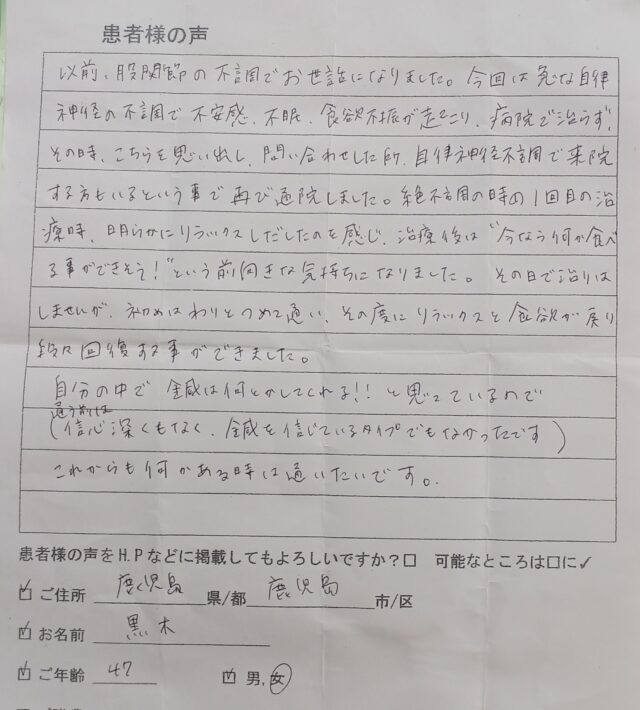 患者様の声
以前、股関節の不調でお世話になりました。今回は急な自律
神経の不調で不安感、不眠、食欲不振が起こり、病院で治らず、
その時、こちらを思い出し、問い合わせした所、自律神経不調で来院
する方もいるという事で再び通院しました。絶不調の時の1回目の治
療時、明らかにリラックスしだしたのを感じ、治療後は"今なら何か食べ
る事ができそう!"という前向きな気持ちになりました。その日で治りは
しませんが、初めはわりとつめて通い、その度にリラックスと食欲が戻り
段々回復する事ができました。
自分の中で鍼は何とかしてくれる!!と思っているので
通う前は
(信心深くもなく、鍼を信じているタイプでもなかったです)
これからも何かある時は通いたいです。
患者様の声をH.Pなどに掲載してもよろしいですか?□ 可能なところは□に✓
☑ ご住所 鹿児島 県/都 鹿児島 市/区
☑ お名前 黒木
☑ ご年齢 47 ☑ 男,女